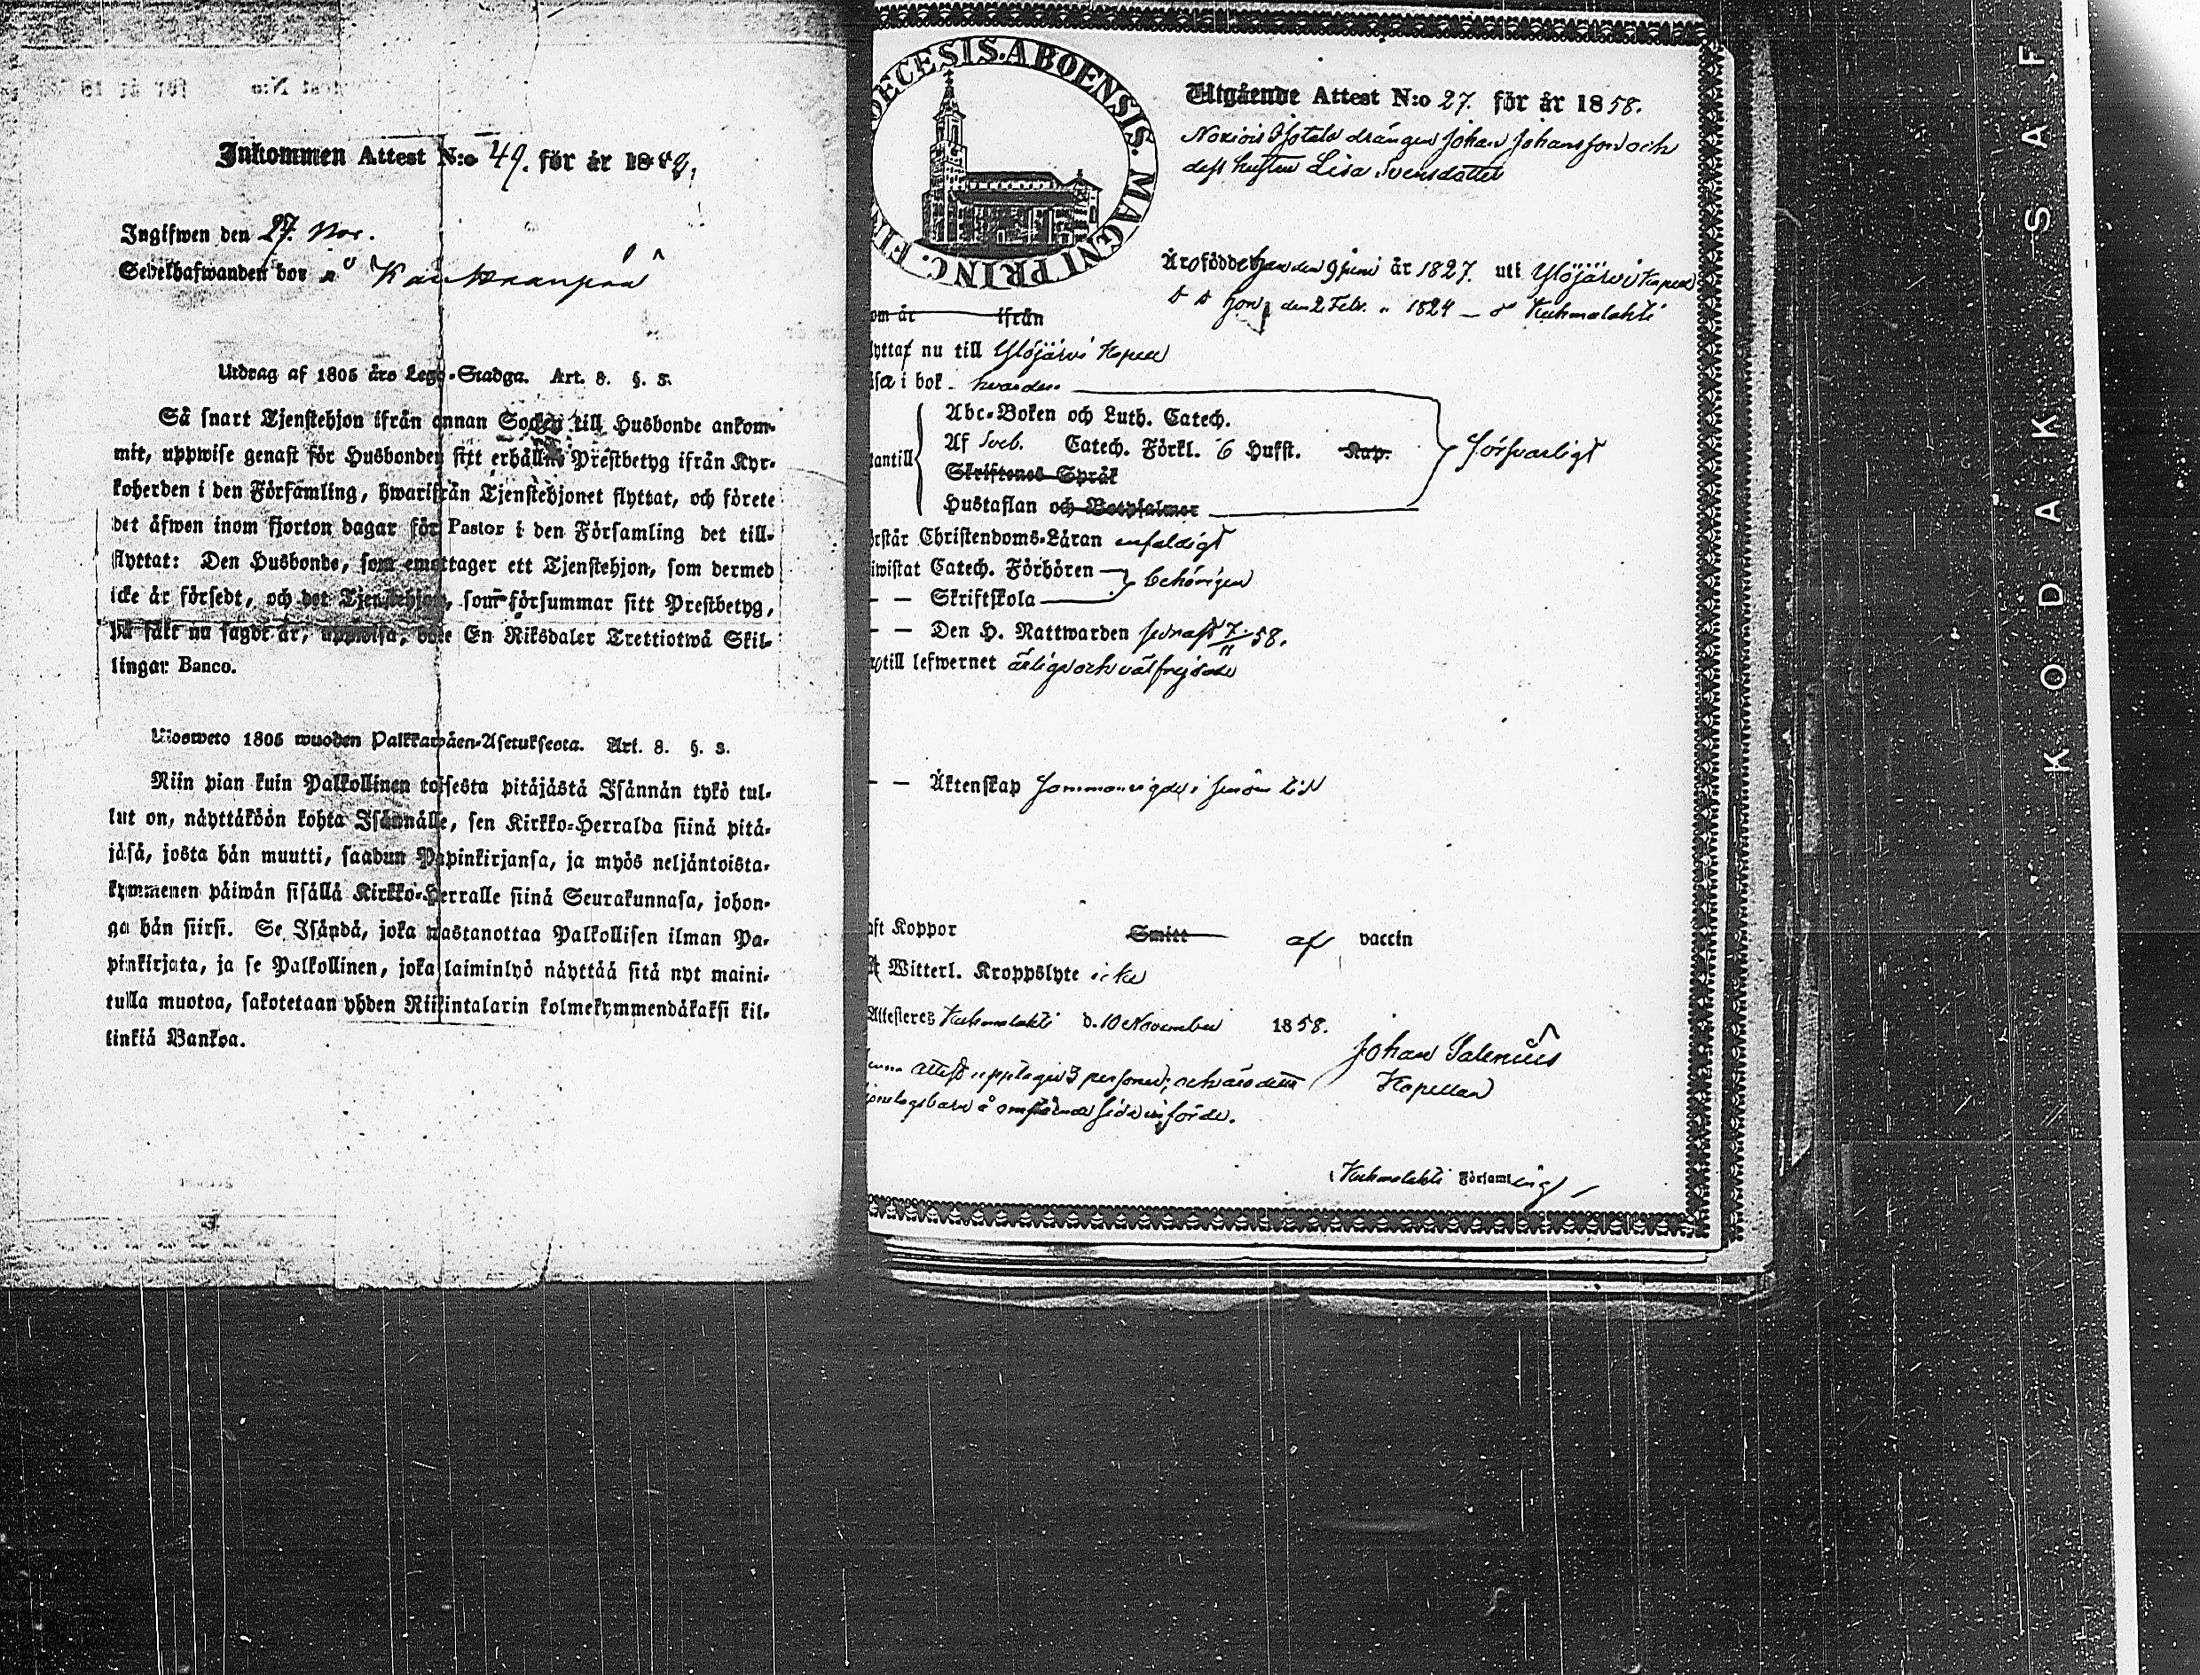 Inkommen Attest N:o 49. för år 18
Ingifwen den 27. Nov.
Sedelhafwanden bor å
Utdrag af 1805 års Lego-Stadga. Art. 8. §. 3.
Så snart Tjenstehjon ifrån annan Socken till Husbonde ankom-
mit, uppwise genast för Husbonden sitt erhållne Prestbetyg ifrån Kyr-
koherden i den Församling, hwarifrån Tjenstehjonet flyttat, och förete
det äfwen inom fjorton dagar för Pastor i den Församling det till-
flyttat: Den Husbonde, som emottager ett Tjenstehjon, som dermed
icke är försedt, och det Tjenstehjon, som försummar sitt Prestbetyg,
på sätt nu sagdt är, uppwisa, böte En Riksdaler Trettiotwå Skil-
lingar Banco.
Ulosweto 1805 wuoden Palkkawäen-Asetuksesta. Art. 8. §. 3.
Niin pian kuin Palkollinen toisesta pitäjästä Isännän tykö tul-
lut on, näyttäköön kohta Isännälle, sen Kirkko-Herralda siinä pitä-
jäsä, josta hän muutti, saadun Papinkirjansa, ja myös neljäntoista-
kymmenen päiwän sisällä Kirkko-Herralle siinä Seurakunnasa, johon-
ga hän siirsi. Se Isändä, joka wastanottaa Palkollisen ilman Pa-
pinkirjata, ja se Palkollinen, joka laiminlyö näyttää sitä nyt maini-
tulla muotoa, sakotetaan yhden Riikintalarin kolmekymmendäkaksi kil-
linkiä Bankoa.
DECESIS. ABOENSIS. MAGNI PRINC. FI
Utgående Attest N:o 27. för år 1858.
drängen Johan Johansson och
dess hustru Lisa Svensdotter
Äro födde han den 9 Juni år 1827. uti Ylöjärvi Kapell
hon den 2 Febr. " 1824 — Kuhmalahti
om år ifrån
lytta nu till Ylöjärvi Kapell
i bok
Abc-Boken och Luth. Catech.
Af Sveb. Catech. Förkl. 6 Hufst. Kap.
antill
försvarligt
Skriftenes Språk
Hustaflan och Botpsalmer
rstår Christendoms-Läran enfaldigt
iwistat Catech. Förhören behörigen
— — Skriftskola
— — Den H. Nattwarden sednast 7/11 58.
till lefwernet ärlige och välfrejdade
— — Äktenskap sammanvigde i sinom tid
aft Koppor Smitt af vaccin
t Witterl. Kroppslyte icke
Attesteres Kuhmalahti d. 10 November 1858.
Johan Salenius
Kapellan
attest upptager 3 personer, och äro dem
å omstående sida införde.
i Kuhmalahti Församling
KODAK SAF